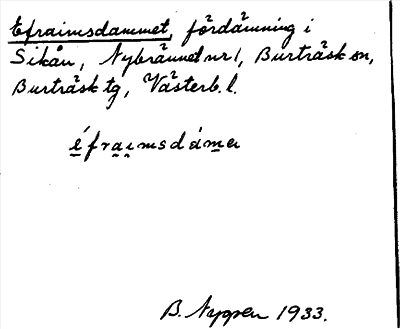 Efraimsdammet, fördämning i
Sikån, Nybrännet nr 1, Burträsk sn,
Burträsk tg, Västerb. l.
éfrai̯msdámeɹ
B. Nygren 1933.